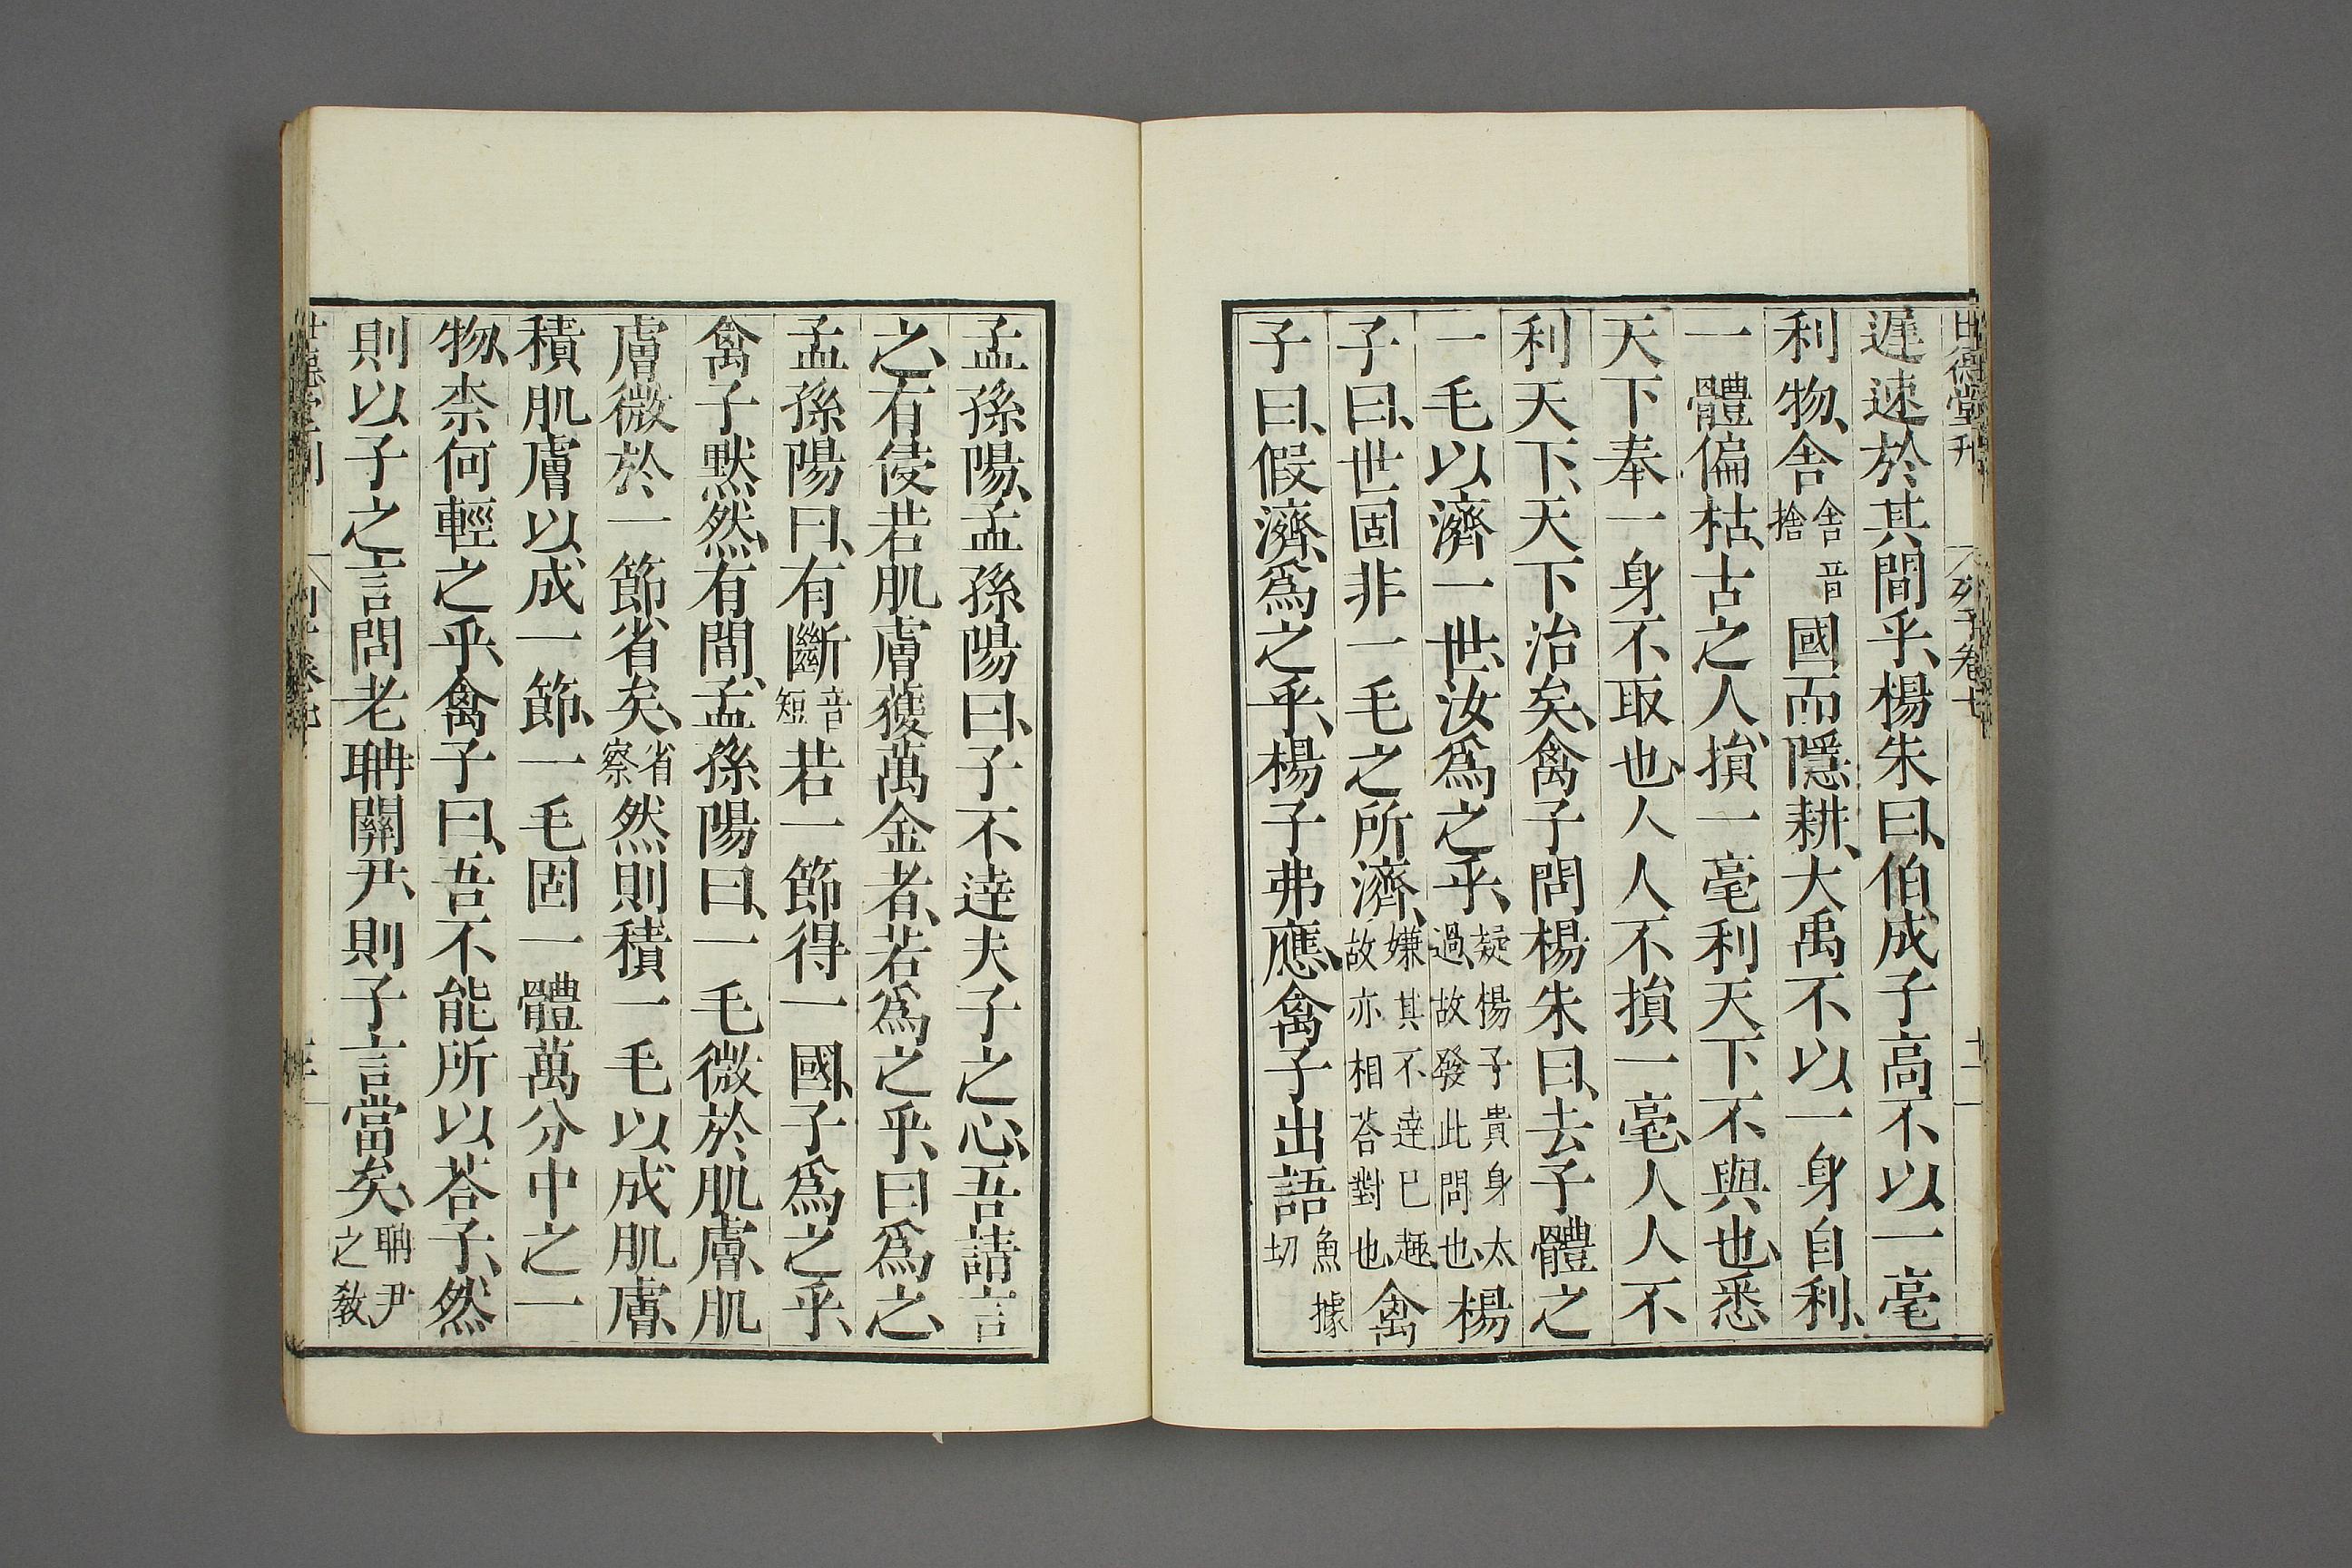 世德堂刊 列子卷七 十一
遲速於其間乎、楊朱曰、伯成子高不以一毫
利物、舍舍音捨國而隱耕、大禹不以一身自利、
一體偏枯、古之人、損一毫利天下不與也、悉
天下奉一身不取也、人人不損一毫、人人不
利天下、天下治矣、禽子問楊朱曰、去子體之
一毛以濟一世、汝爲之乎、疑楊子貴身太過、故發此問也、楊
子曰、世固非一毛之所濟、嫌其不達己趣、故亦相荅對也、禽
子曰、假濟、爲之乎、楊子弗應、禽子出語魚據切
孟孫陽、孟孫陽曰、子不達夫子之心、吾請言
之、有侵若肌膚獲萬金者、若爲之乎、曰爲之、
孟孫陽曰、有斷音短若一節得一國、子爲之乎、
禽子默然、有間、孟孫陽曰、一毛微於肌膚、肌
膚微於一節、省矣、省察然則積一毛以成肌膚、
積肌膚以成一節、一毛固一體萬分中之一
物、柰何輕之乎、禽子曰、吾不能所以荅子、然
則以子之言問老聃關尹、則子言當矣、聃尹之教